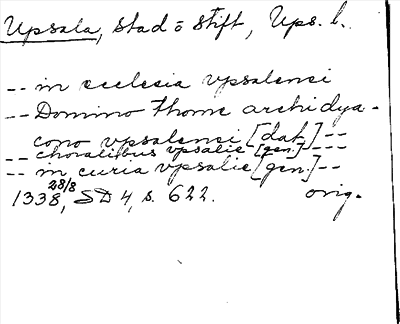 Upsala, stad o Stift, Ups. l.
-- in ecclesia vpsalensi
-- Domino thome archidya-
cono vpsalensi [dat.] --
-- choralibus vpsalie [gen.] ----
-- in curia vpsalie [gen.] --
28/8
1338, SD 4, s. 622. orig.